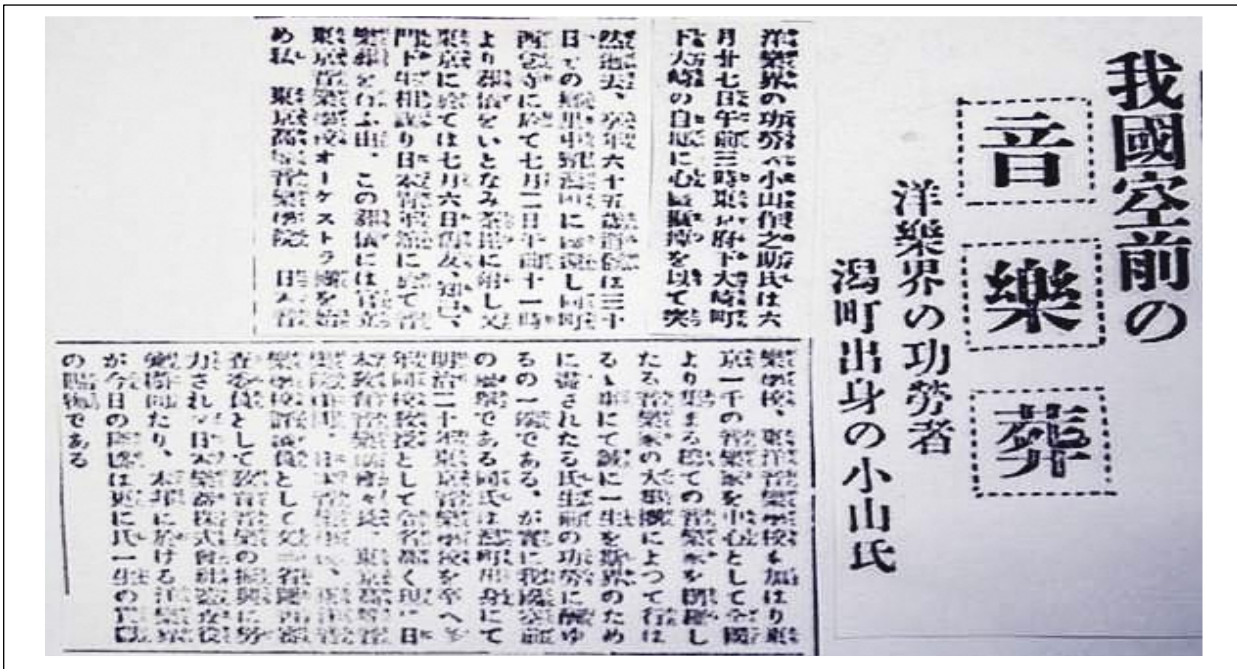 我國空前の
音樂葬
洋樂界の功勞者
潟町出身の小山氏
洋樂界の功勞小山作之助氏は六
月廿七日午前三時東京府下大崎町
下大崎の自邸に心臓痲痺を以て突
然逝去、享年六十五歳遺骸は三十
日その郷里中頸潟町に帰還し同町
西念寺に於て七月二日午前十一時
より葬儀をいとなみ茶毘に附し又
東京に於ては七月六日朋友、知己、
門下生相謀り日本青年館に於て音
樂葬を行ふ由、この葬儀には官立
東京音樂學校オーケストラ部を始
め私 東京高等音樂學院 日本音
樂學校、東洋音樂學校も加はり東
京一千の音樂家を中心として全國
より集まる總ての音樂家を網羅し
たる音樂家の大 によつて行は
るゝ事にて誠に一生を斯界のため
に盡されたる氏生前の功勞に酬ゆ
るの一端である、が實に我國空前
の盛舉である同氏は潟町出身にて
明治二十年東京音樂學校を卒へ多
年同校教授として令名高く現に日
本教育音樂協會々長、東京高等音
樂學院
樂學校評議員として又
査委員として教育音樂の振興に努
力され又日本樂器株式會社 役
顧問たり、本邦に於ける洋樂界
が今日の隆盛は更に氏一生の
の賜物である